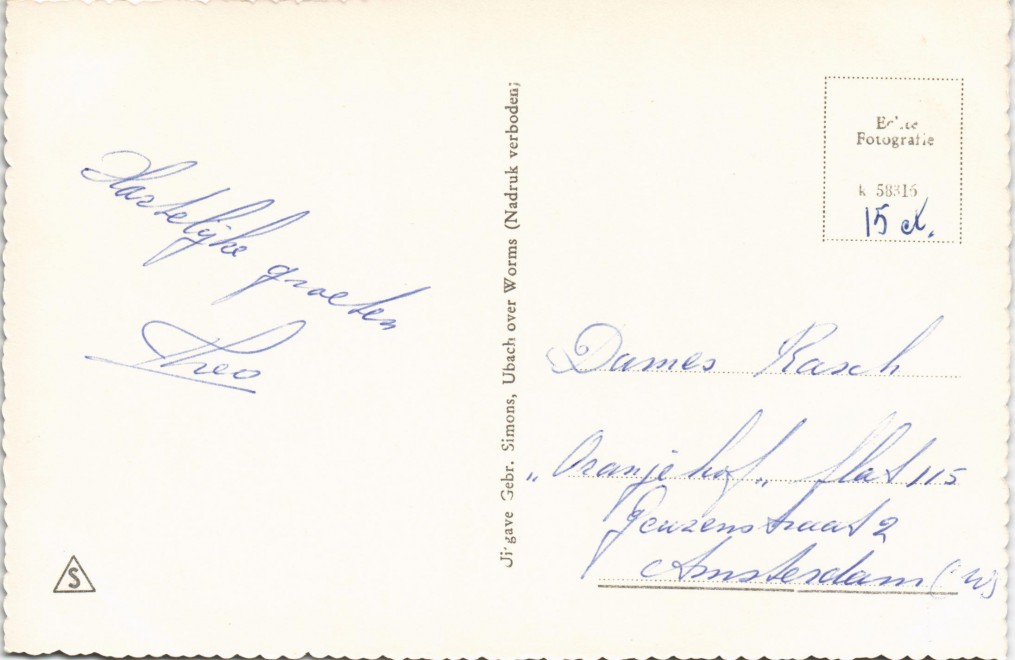 Hartelijke groeten
Theo
Uitgave Gebr. Simons, Ubach over Worms (Nadruk verboden)
Echte
Fotografie
k 58316
15 ct.
Dames Rasch
„Oranjehof„ flat 115
Geuzenstraat 2
Amsterdam (W)
S